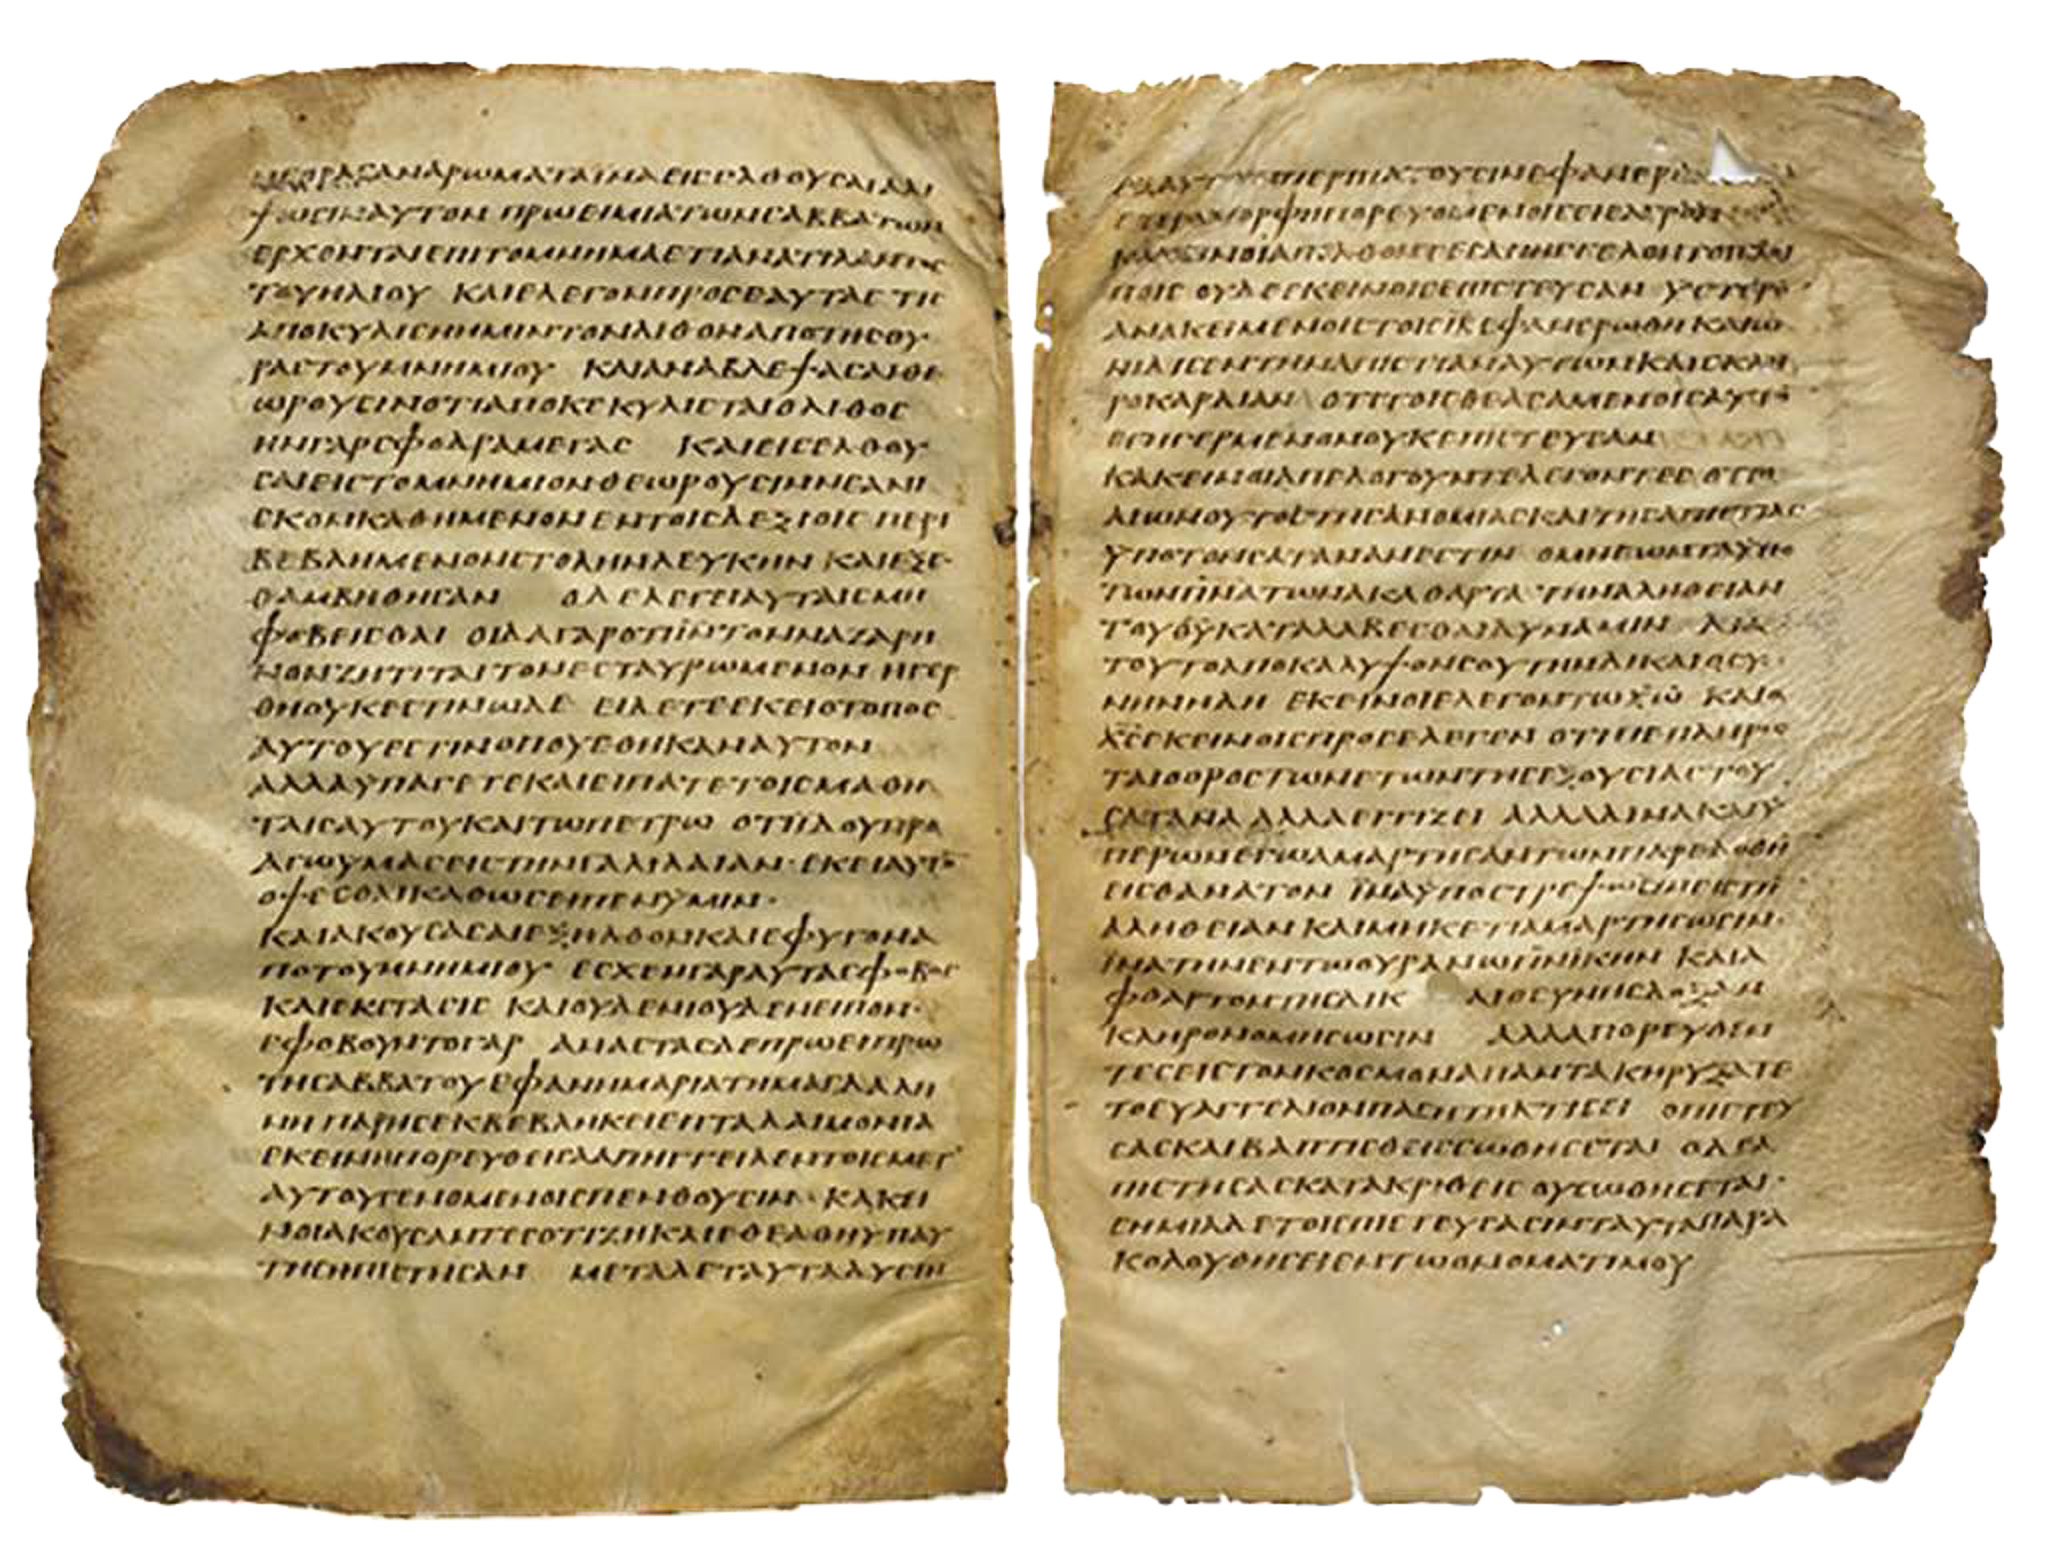 ΗΓΟΡΑΣΑΝ ΑΡΩΜΑΤΑ ΙΝΑ ΕΙΣΕΛΘΟΥΣΑΙ ΑΛΙ
ΨΩΣΙΝ ΑΥΤΟΝ ΠΡΩΕΙ ΜΙΑΤΩΝ ΣΑΒΒΑΤΩΝ
ΕΡΧΟΝΤΑΙ ΕΠΙ ΤΟ ΜΝΗΜΑ ΕΤΙ ΑΝΑΤΙΛΑΝΤΟΣ
ΤΟΥ ΗΛΙΟΥ ΚΑΙ ΕΛΕΓΟΝ ΠΡΟΣ ΕΑΥΤΑΣ ΤΙΣ
ΑΠΟΚΥΛΙΣΗ ΗΜΙΝ ΤΟΝ ΛΙΘΟΝ ΑΠΟ ΤΗΣ ΘΥ
ΡΑΣ ΤΟΥ ΜΝΗΜΙΟΥ ΚΑΙ ΑΝΑΒΛΕΨΑΣΑΙ ΘΕ
ΩΡΟΥΣΙΝ ΟΤΙ ΑΠΟΚΕΚΥΛΙΣΤΑΙ Ο ΛΙΘΟΣ
ΗΝ ΓΑΡ ΣΦΟΔΡΑ ΜΕΓΑΣ ΚΑΙ ΕΙΣΕΛΘΟΥ
ΣΑΙ ΕΙΣ ΤΟ ΜΝΗΜΙΟΝ ΘΕΩΡΟΥΣΙΝ ΝΕΑΝΙ
ΣΚΟΝ ΚΑΘΗΜΕΝΟΝ ΕΝ ΤΟΙΣ ΔΕΞΙΟΙΣ ΠΕΡΙ
ΒΕΒΛΗΜΕΝΟΝ ΣΤΟΛΗΝ ΛΕΥΚΗΝ ΚΑΙ ΕΞΕ
ΘΑΜΒΗΘΗΣΑΝ Ο ΔΕ ΛΕΓΕΙ ΑΥΤΑΙΣ ΜΗ
ΦΟΒΕΙΣΘΑΙ ΟΙΔΑ ΓΑΡ ΟΤΙ ΙΝ ΤΟΝ ΝΑΖΑΡΗ
ΝΟΝ ΖΗΤΙΤΑΙ ΤΟΝ ΕΣΤΑΥΡΩΜΕΝΟΝ ΗΓΕΡ
ΘΗ ΟΥΚ ΕΣΤΙΝ ΩΔΕ ΕΙΔΕΤΕ ΕΚΕΙ Ο ΤΟΠΟΣ
ΑΥΤΟΥ ΕΣΤΙΝ ΟΠΟΥ ΕΘΗΚΑΝ ΑΥΤΟΝ
ΑΛΛΑ ΥΠΑΓΕΤΕ ΚΑΙ ΕΙΠΑΤΕ ΤΟΙΣ ΜΑΘΗ
ΤΑΙΣ ΑΥΤΟΥ ΚΑΙ ΤΩ ΠΕΤΡΩ ΟΤΙ ΙΔΟΥ ΠΡΟ
ΑΓΩ ΥΜΑΣ ΕΙΣ ΤΗΝ ΓΑΛΙΛΑΙΑΝ· ΕΚΕΙ ΑΥΤΟ
ΟΨΕΣΘΑΙ ΚΑΘΩΣ ΕΙΠΕΝ ΥΜΙΝ·
ΚΑΙ ΑΚΟΥΣΑΣΑΙ ΕΞΗΛΘΟΝ ΚΑΙ ΕΦΥΓΟΝ Α
ΠΟ ΤΟΥ ΜΝΗΜΙΟΥ ΕΣΧΕΝ ΓΑΡ ΑΥΤΑΣ ΦΟΒΟΣ
ΚΑΙ ΕΚΣΤΑΣΙΣ ΚΑΙ ΟΥΔΕΝΙ ΟΥΔΕΝ ΕΙΠΟΝ·
ΕΦΟΒΟΥΝΤΟ ΓΑΡ ΑΝΑΣΤΑΣ ΔΕ ΠΡΩΕΙ ΠΡΩ
ΤΗ ΣΑΒΒΑΤΟΥ ΕΦΑΝΗ ΜΑΡΙΑ ΤΗ ΜΑΓΔΑΛΗ
ΝΗ ΠΑΡ ΗΣ ΕΚΒΕΒΛΗΚΕΙ ΕΠΤΑ ΔΑΙΜΟΝΙΑ
ΕΚΕΙΝΗ ΠΟΡΕΥΘΕΙΣΑ ΑΠΗΓΓΕΙΛΕΝ ΤΟΙΣ ΜΕΤ
ΑΥΤΟΥ ΓΕΝΟΜΕΝΟΙΣ ΠΕΝΘΟΥΣΙΝ· ΚΑΚΕΙ
ΝΟΙ ΑΚΟΥΣΑΝΤΕΣ ΟΤΙ ΖΗ ΚΑΙ ΕΘΕΑΘΗ ΥΠ ΑΥ
ΤΗΣ ΗΠΙΣΤΗΣΑΝ ΜΕΤΑ ΔΕ ΤΑΥΤΑ ΔΥΣΙΝ
ΕΞ ΑΥΤΩΝ ΠΕΡΙΠΑΤΟΥΣΙΝ ΕΦΑΝΕΡΩΘΗ
ΕΤΕΡΑ ΜΟΡΦΗ ΠΟΡΕΥΟΜΕΝΟΙΣ ΕΙΣ ΑΓΡΟΝ
ΚΑΚΕΙΝΟΙ ΑΠΕΛΘΟΝΤΕΣ ΑΠΗΓΓΕΛΟΝ ΤΟΙΣ ΛΟΙ
ΠΟΙΣ ΟΥΔΕ ΕΚΕΙΝΟΙΣ ΕΠΙΣΤΕΥΣΑΝ ΥΣΤΕΡΟ
ΑΝΑΚΕΙΜΕΝΟΙΣ ΤΟΙΣ ΙΒ ΕΦΑΝΕΡΩΘΗ ΚΑΙ Ω
ΝΙΔΙΣΕΝ ΤΗΝ ΑΠΙΣΤΙΑΝ ΑΥΤΩΝ ΚΑΙ ΣΚΛΗ
ΡΟΚΑΡΔΙΑΝ ΟΤΙ ΤΟΙΣ ΘΕΑΣΑΜΕΝΟΙΣ ΑΥΤΟ
ΕΓΗΓΕΡΜΕΝΟΝ ΟΥΚ ΕΠΙΣΤΕΥΣΑΝ
ΚΑΚΕΙΝΟΙ ΑΠΕΛΟΓΟΥΝΤΕ ΛΕΓΟΝΤΕΣ ΟΤΙ Ο
ΑΙΩΝ ΟΥΤΟΣ ΤΗΣ ΑΝΟΜΙΑΣ ΚΑΙ ΤΗΣ ΑΠΙΣΤΙΑΣ
ΥΠΟ ΤΟΝ ΣΑΤΑΝΑΝ ΕΣΤΙΝ Ο ΜΗ ΕΩΝ ΤΑ ΥΠΟ
ΤΩΝ ΠΝΑΤΩΝ ΑΚΑΘΑΡΤΑ ΤΗΝ ΑΛΗΘΕΙΑΝ
ΤΟΥ ΘΥ ΚΑΤΑΛΑΒΕΣΘΑΙ ΔΥΝΑΜΙΝ ΔΙΑ
ΤΟΥΤΟ ΑΠΟΚΑΛΥΨΟΝ ΣΟΥ ΤΗΝ ΔΙΚΑΙΟΣΥ
ΝΗΝ ΗΔΗ ΕΚΕΙΝΟΙ ΕΛΕΓΟΝ ΤΩ ΧΩ ΚΑΙ Ο
ΧΣ ΕΚΕΙΝΟΙΣ ΠΡΟΣΕΛΕΓΕΝ ΟΤΙ ΠΕΠΛΗΡΩ
ΤΑΙ Ο ΟΡΟΣ ΤΩΝ ΕΤΩΝ ΤΗΣ ΕΞΟΥΣΙΑΣ ΤΟΥ
ΣΑΤΑΝΑ ΑΛΛΑ ΕΓΓΙΖΕΙ ΑΛΛΑ ΔΙΝΑ ΚΑΙ Υ
ΠΕΡ ΩΝ ΕΓΩ ΑΜΑΡΤΗΣΑΝΤΩΝ ΠΑΡΕΔΟΘΗ
ΕΙΣ ΘΑΝΑΤΟΝ ΙΝΑ ΥΠΟΣΤΡΕΨΩΣΙΝ ΕΙΣ ΤΗ
ΑΛΗΘΕΙΑΝ ΚΑΙ ΜΗΚΕΤΙ ΑΜΑΡΤΗΣΩΣΙΝ·
ΙΝΑ ΤΗΝ ΕΝ ΤΩ ΟΥΡΑΝΩ ΠΝΙΚΗΝ ΚΑΙ Α
ΦΘΑΡΤΟΝ ΤΗΣ ΔΙΚ ΑΙΟΣΥΝΗΣ ΔΟΞΑΝ
ΚΛΗΡΟΝΟΜΗΣΩΣΙΝ ΑΛΛΑ ΠΟΡΕΥΘΕΝ
ΤΕΣ ΕΙΣ ΤΟΝ ΚΟΣΜΟΝ ΑΠΑΝΤΑ ΚΗΡΥΞΑΤΕ
ΤΟ ΕΥΑΓΓΕΛΙΟΝ ΠΑΣΗ ΤΗ ΚΤΙΣΕΙ Ο ΠΙΣΤΕΥ
ΣΑΣ ΚΑΙ ΒΑΠΤΙΣΘΕΙΣ ΣΩΘΗΣΕΤΑΙ Ο ΔΕ Α
ΠΙΣΤΗΣΑΣ ΚΑΤΑΚΡΙΘΕΙΣ ΟΥ ΣΩΘΗΣΕΤΑΙ·
ΣΗΜΙΑ ΔΕ ΤΟΙΣ ΠΙΣΤΕΥΣΑΣΙΝ ΤΑΥΤΑ ΠΑΡΑ
ΚΟΛΟΥΘΗΣΕΙ ΕΝ ΤΩ ΟΝΟΜΑΤΙ ΜΟΥ